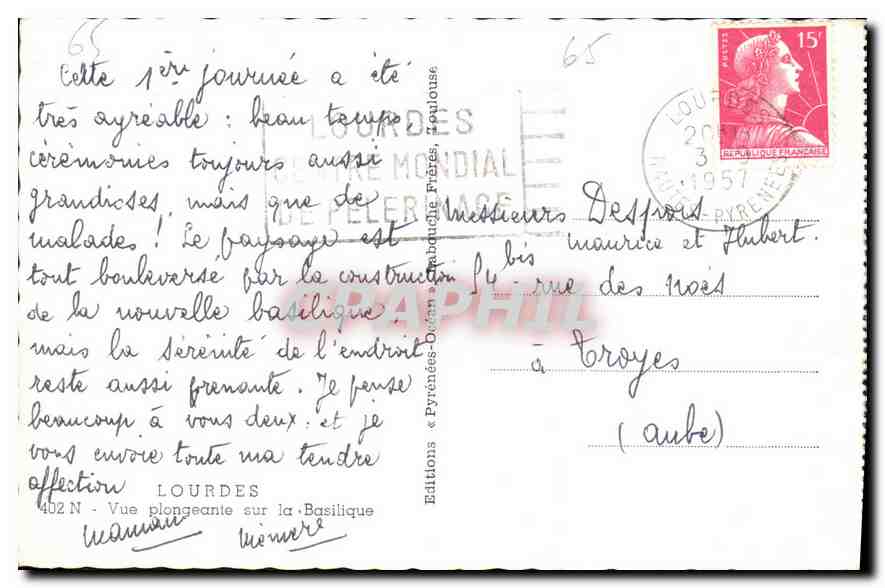 65
65
Cette 1ère journée a été
très agréable : beau temps,
cérémonies toujours aussi
grandioses, mais que de
malades ! Le paysage est
tout bouleversé par la construction
de la nouvelle basilique,
mais la sérénité de l'endroit
reste aussi prenante. Je pense
beaucoup à vous deux et je
vous envoie toute ma tendre
affection
LOURDES
402 N - Vue plongeante sur la Basilique
Maman Mémère
Editions « Pyrénées-Océan » Labouche Frères, Toulouse
LOURDES
CENTRE MONDIAL
DE PELERINAGE
POSTES
15F
REPUBLIQUE FRANÇAISE
LOURDES
20H
3
1957
HAUTES-PYRENEES
Messieurs Desprois
Maurice et Hubert.
14 bis rue des Noës
à Troyes
(Aube)
CPAPHIL